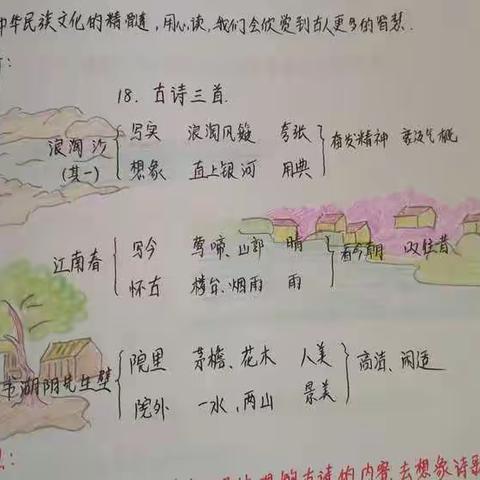 中华民族文化的精髓,用心读,我们会欣赏到古人更多的智慧.
:
18. 古诗三首.
浪淘沙(其一) 写实 浪淘风簸 夸张 奋发精神 豪迈气概
想象 直上银河 用典
江南春 写今 莺啼、山郭 晴 看今朝 叹往昔
怀古 楼台、烟雨 雨
书湖阴先生壁 院里 茅檐、花木 人美 高洁、闲适
院外 一水,两山 景美
:
的古诗的内容,去想象诗歌